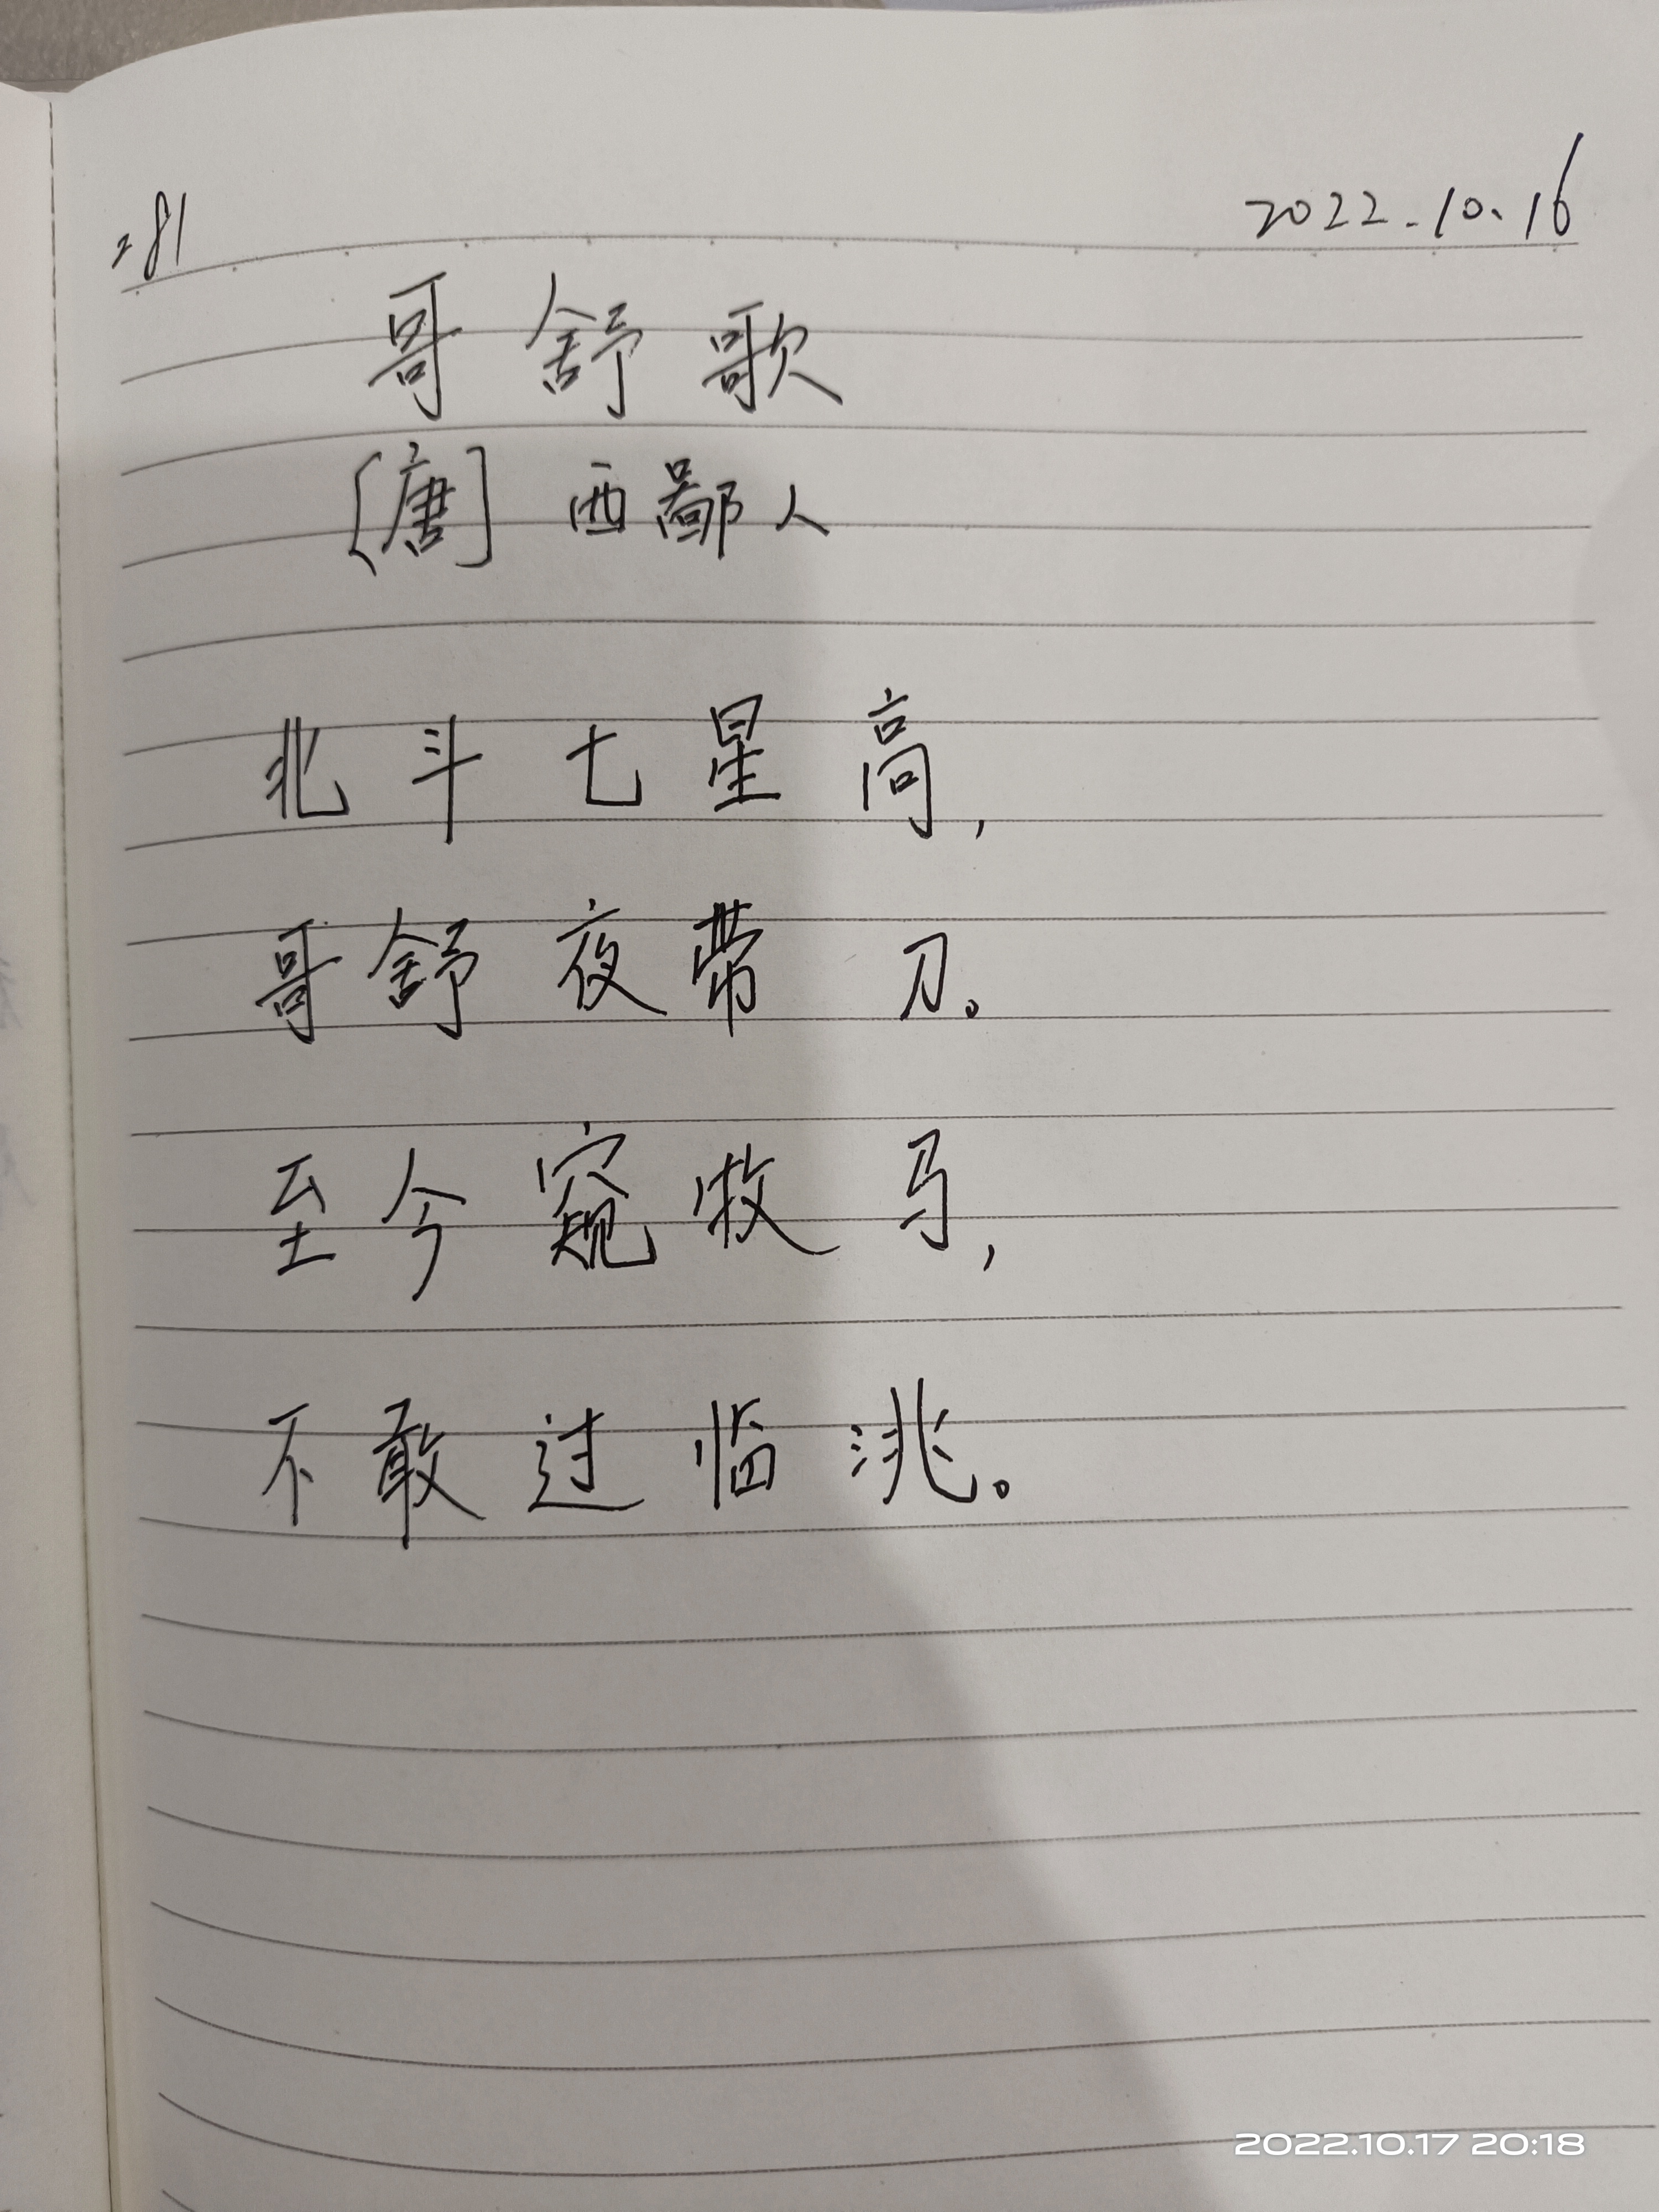 281
2022.10.16
哥舒歌
[唐] 西鄙人
北斗七星高,
哥舒夜带刀。
至今窥牧马,
不敢过临洮。
2022.10.17 20:18